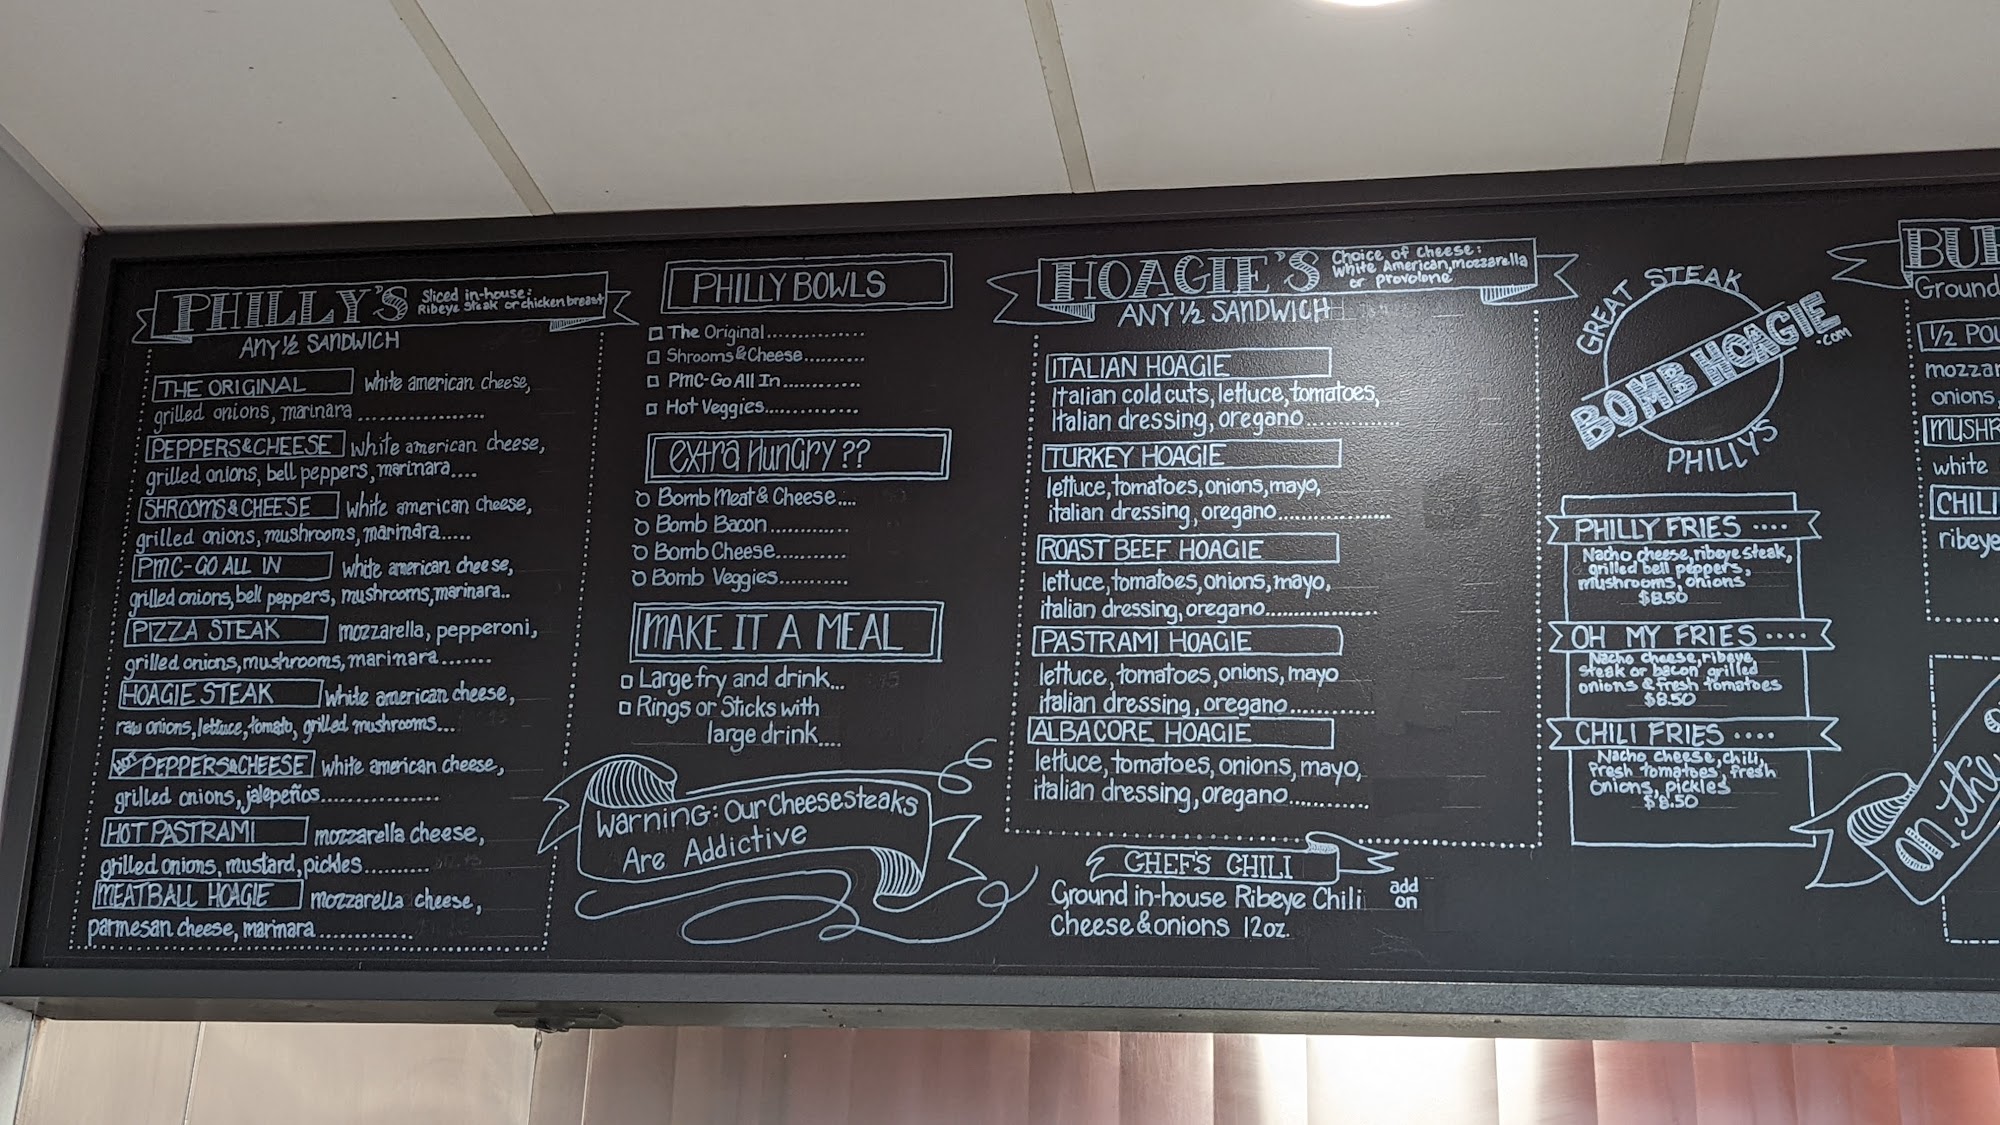 PHILLY'S
Sliced in-house:
Ribeye Steak or chicken breast
ANY 1/2 SANDWICH
THE ORIGINAL white american cheese,
grilled onions, marinara ...................
PEPPERS & CHEESE White american cheese,
grilled onions, bell peppers, marinara....
SHROOMS & CHEESE White american cheese,
grilled onions, mushrooms, marinara.....
PMC-GO ALL IN white american cheese,
grilled onions, bell peppers, mushrooms, marinara..
PIZZA STEAK mozzarella, pepperoni,
grilled onions, mushrooms, marinara.......
HOAGIE STEAK White american cheese,
raw onions, lettuce, tomato, grilled mushrooms...
HOT PEPPERS & CHEESE white american cheese,
grilled onions, jalepeños.................
HOT PASTRAMI mozzarella cheese,
grilled onions, mustard, pickles..........
MEATBALL HOAGIE mozzarella cheese,
parmesan cheese, marinara.............
PHILLY BOWLS
The Original...............
Shrooms & Cheese..........
PMC-Go All In............
Hot Veggies..............
extra HUNGRY ??
Bomb Meat & Cheese....
Bomb Bacon............
Bomb Cheese...........
Bomb Veggies...........
MAKE IT A MEAL
Large fry and drink...
Rings or Sticks with
large drink....
Warning: Our Cheesesteaks
Are Addictive
HOAGIE'S
Choice of cheese:
White American, mozzarella
or provolone
ANY 1/2 SANDWICH
ITALIAN HOAGIE
Italian cold cuts, lettuce, tomatoes,
Italian dressing, oregano..............
TURKEY HOAGIE
lettuce, tomatoes, onions, mayo,
italian dressing, oregano................
ROAST BEEF HOAGIE
lettuce, tomatoes, onions, mayo,
italian dressing, oregano................
PASTRAMI HOAGIE
lettuce, tomatoes, onions, mayo
italian dressing, oregano............
ALBACORE HOAGIE
lettuce, tomatoes, onions, mayo,
italian dressing, oregano...........
CHEF'S CHILI
Ground in-house Ribeye Chili
Cheese & onions 12oz.
add
on
GREAT STEAK
BOMB HOAGIE
.com
PHILLYS
PHILLY FRIES ....
Nacho cheese, ribeye steak,
grilled bell peppers,
mushrooms, onions
$8.50
OH MY FRIES ....
Nacho cheese, ribeye
steak or bacon grilled
onions & fresh tomatoes
$8.50
CHILI FRIES ....
Nacho cheese, chili,
Fresh tomatoes, fresh
onions, pickles
$8.50
Ground
1/2 POU
mozzar
onions,
MUSHR
white
CHILI
ribeye
ON the